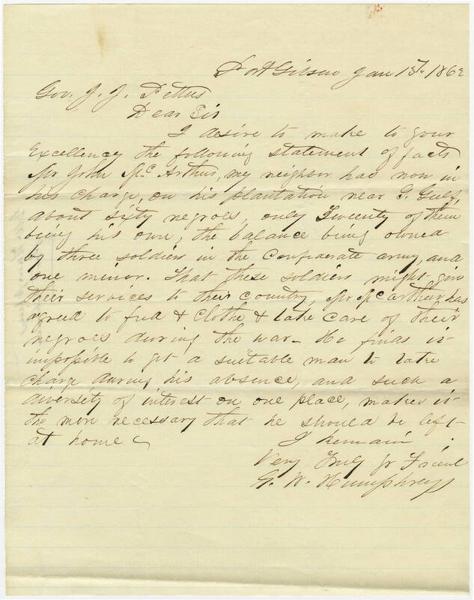 Port Gibson Jan 15th 1862
Gov. J. J. Pettus
Dear Sir
I desire to make to your
Excellency the following statement of facts
Mr John McArthur, my neighbor has now in
his charge, on his plantation near G. Gulf,
about sixty negroes, only Twenty of them
being his own, the balance being owned
by three soldiers in the Confederate army, and
one minor. That these soldiers might give
their services to their country, Mr McArthur has
agreed to feed & clothe & take care of their
negroes during the war. He finds it
impossible to get a suitable man to take
charge during his absence, and such a
diversity of interest on one place, makes it
the more necessary that he should be left
at home
I remain
Very Truly yr Friend
G. W. Humphreys